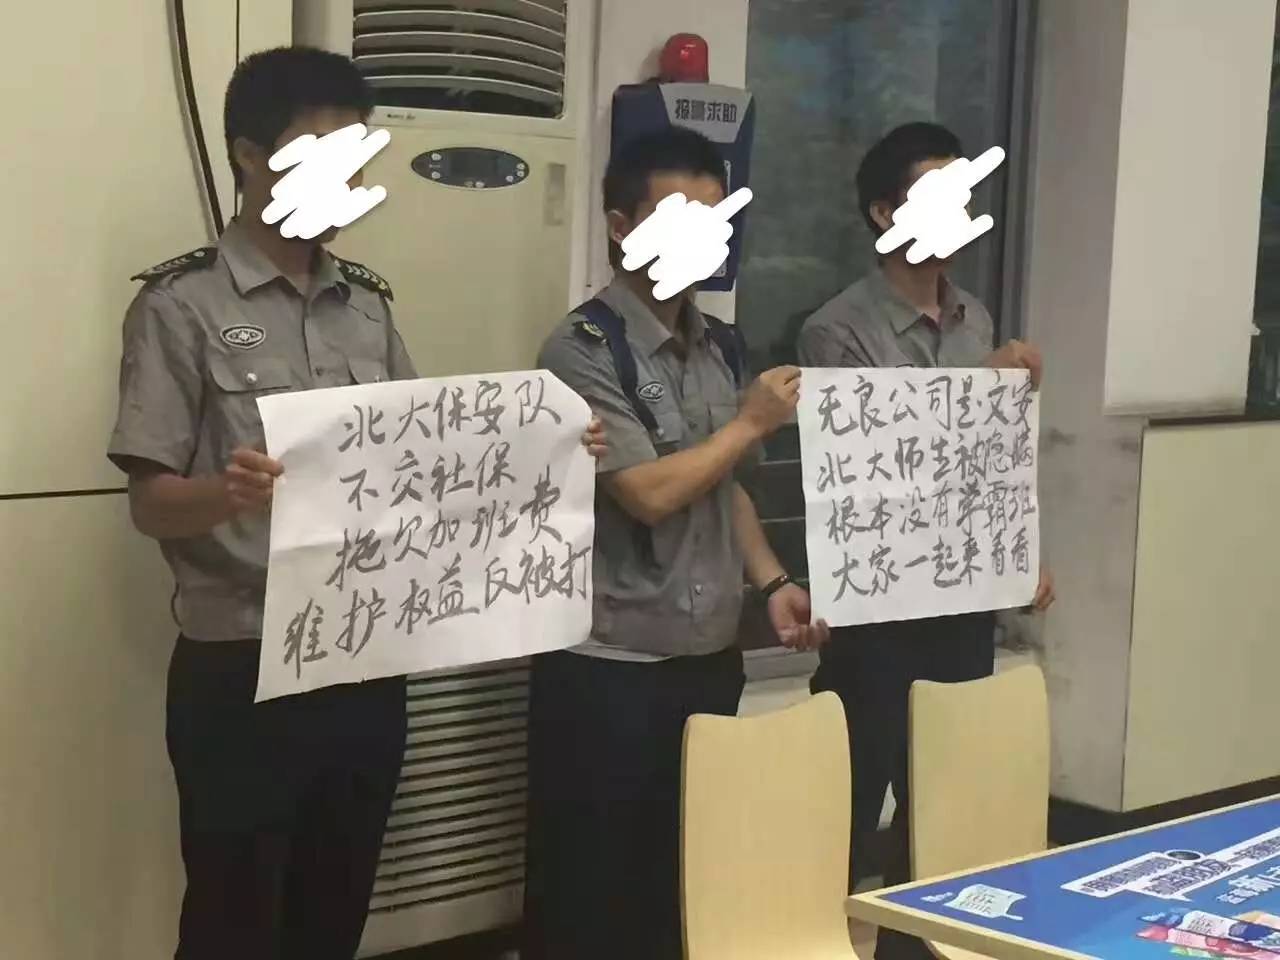 报警求助
北大保安队
不交社保
拖欠加班费
维护权益反被打
无良公司是文安
北大师生被隐瞒
根本没有学霸班
大家一起来看看